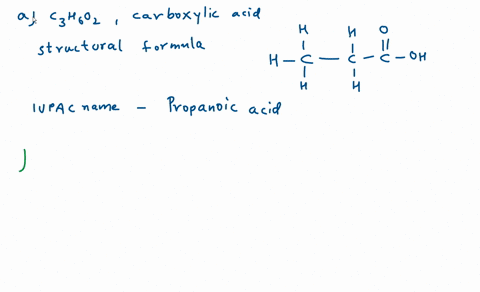 a) C₃H₆O₂ , carboxylic acid
structural formula
H H O
H – C – C – C – OH
H H
IUPAC name – Propanoic acid
)